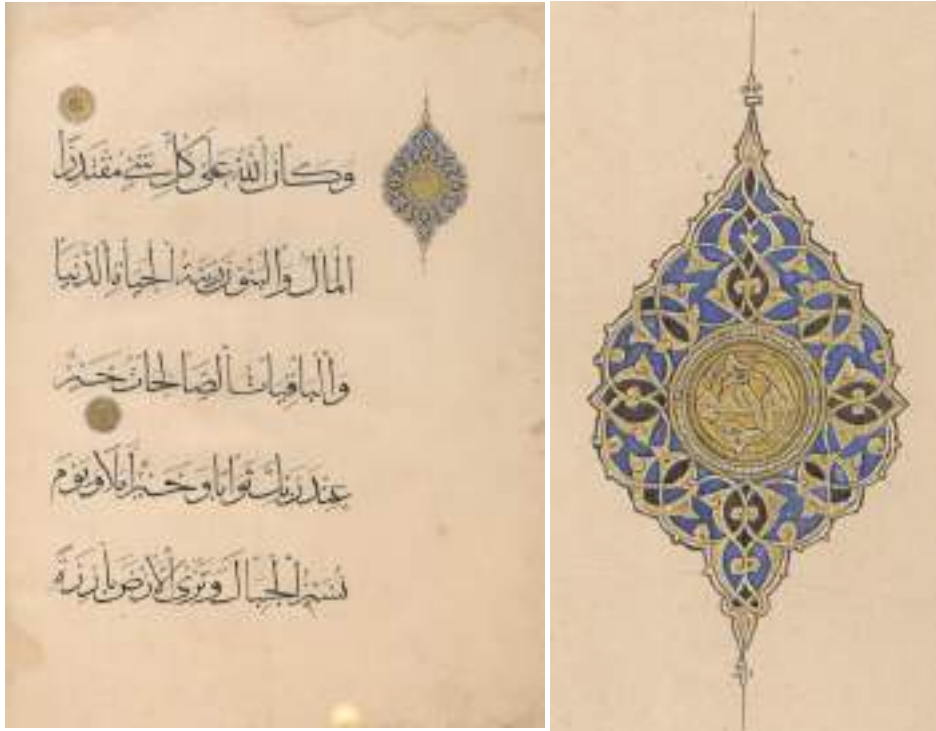 وَكَانَ اللَّهُ عَلَى كُلِّ شَيْءٍ مُقْتَدِرًا
الْمَالُ وَالْبَنُونَ زِينَةُ الْحَيَاةِ الدُّنْيَا
وَالْبَاقِيَاتُ الصَّالِحَاتُ خَيْرٌ
عِنْدَ رَبِّكَ ثَوَابًا وَخَيْرٌ أَمَلًا وَيَوْمَ
نُسَيِّرُ الْجِبَالَ وَتَرَى الْأَرْضَ بَارِزَةً